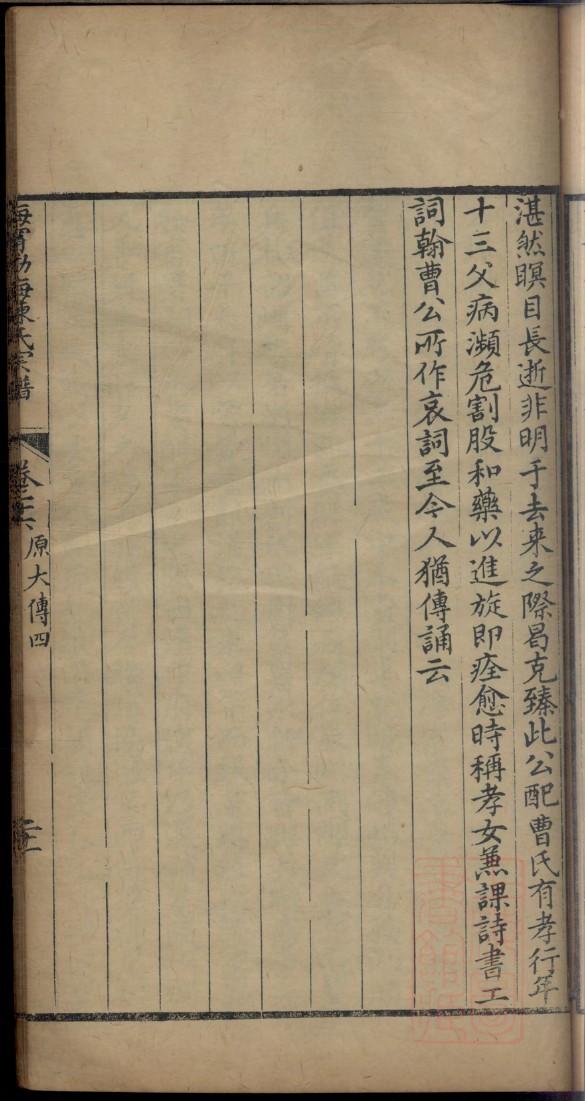 湛然瞑目長逝非明于去来之際曷克臻此公配曹氏有孝行年
十三父病瀕危割股和藥以進旋即痊愈時稱孝女兼課詩書工
詞翰曹公所作哀詞至今人猶傳誦云
海寧渤海陳氏宗譜
原大傳四